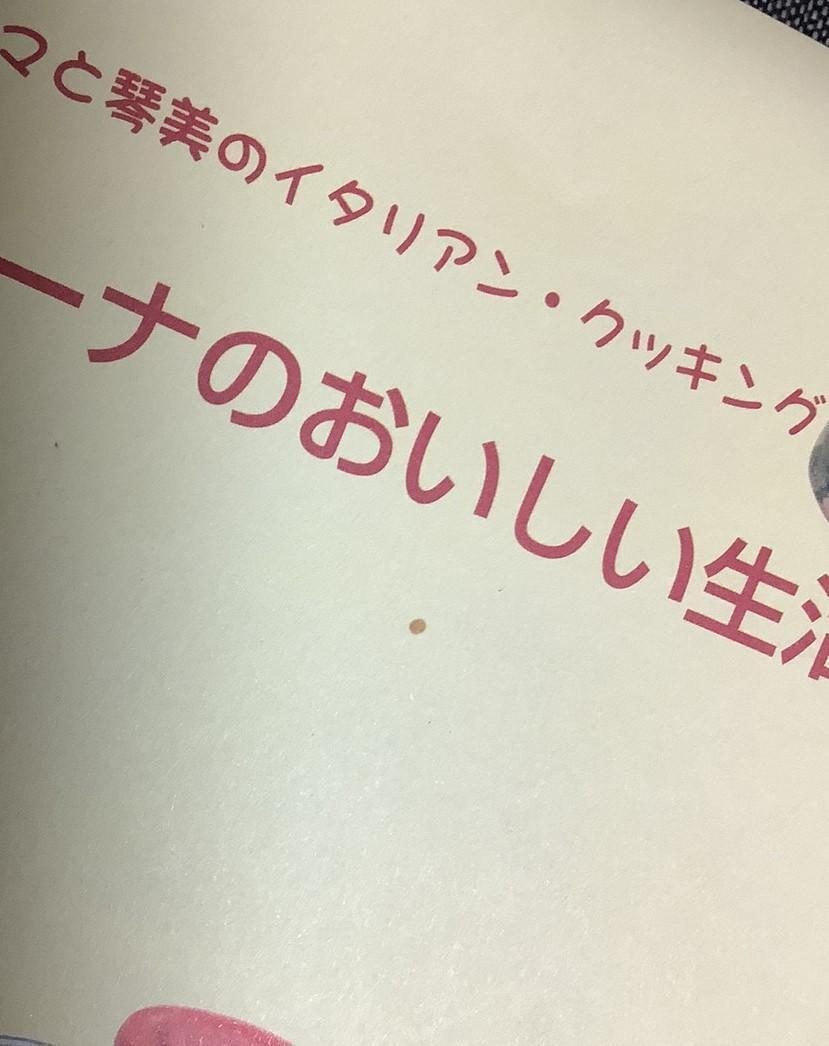 マと琴美のイタリアン・クッキング
ーナのおいしい生活